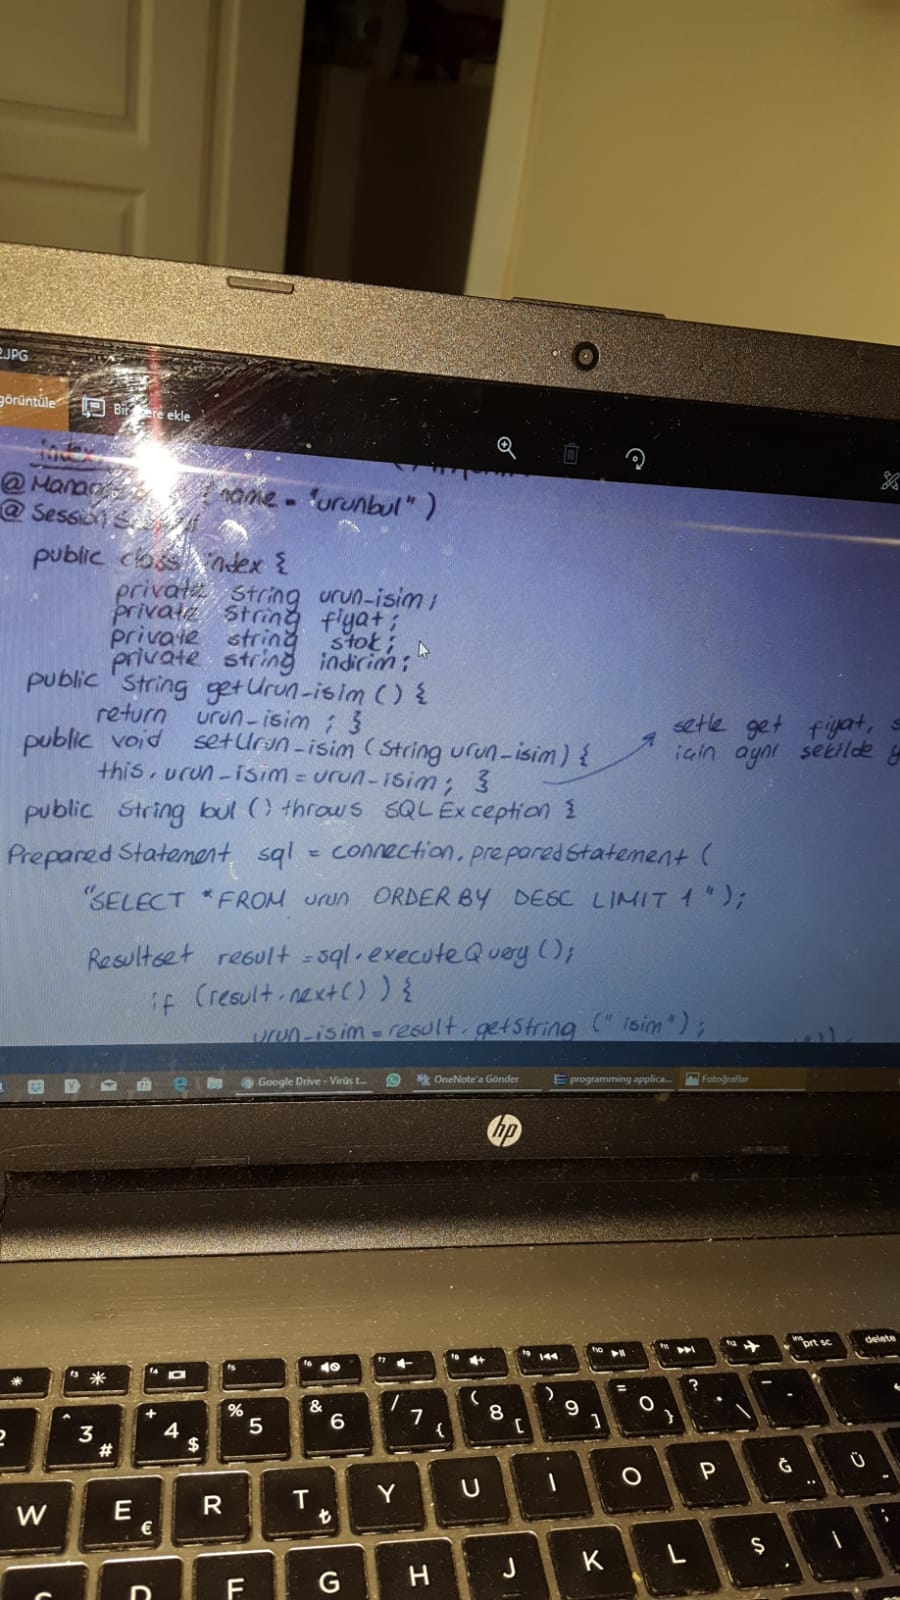 .JPG
görüntüle
ekle
index
name = "urunbul")
@ Session
public class index {
private string urun-isim;
private string fiyat;
private string stok;
private string indirim;
public String getUrun-isim () {
return urun-isim ; }
public void setUrun-isim (String urun-isim) {
this.urun-isim = urun-isim; }
setle get fiyat,
için aynı şekilde y
public string bul () throws SQLException {
PreparedStatement sql = connection.preparedstatement (
"SELECT * FROM urun ORDER BY DESC LIMIT 1");
Resultset result = sql.executeQuery ();
if (result.next()) {
urun-isim = result.getString ("isim");
Google Drive - Virüs t...
OneNote'a Gönder
programming applica...
Fotoğraflar
hp
f3 f4 f5 f6 f7 f8 f9 f10 f11 f12 ins prt sc delete
^ 3 # + 4 $ % 5 & 6 / 7 { ( 8 [ ) 9 ] = 0 } ? * \ - -
W E € R T ₺ Y U I O P Ğ ¨ Ü
D F G H J K L Ş İ ;